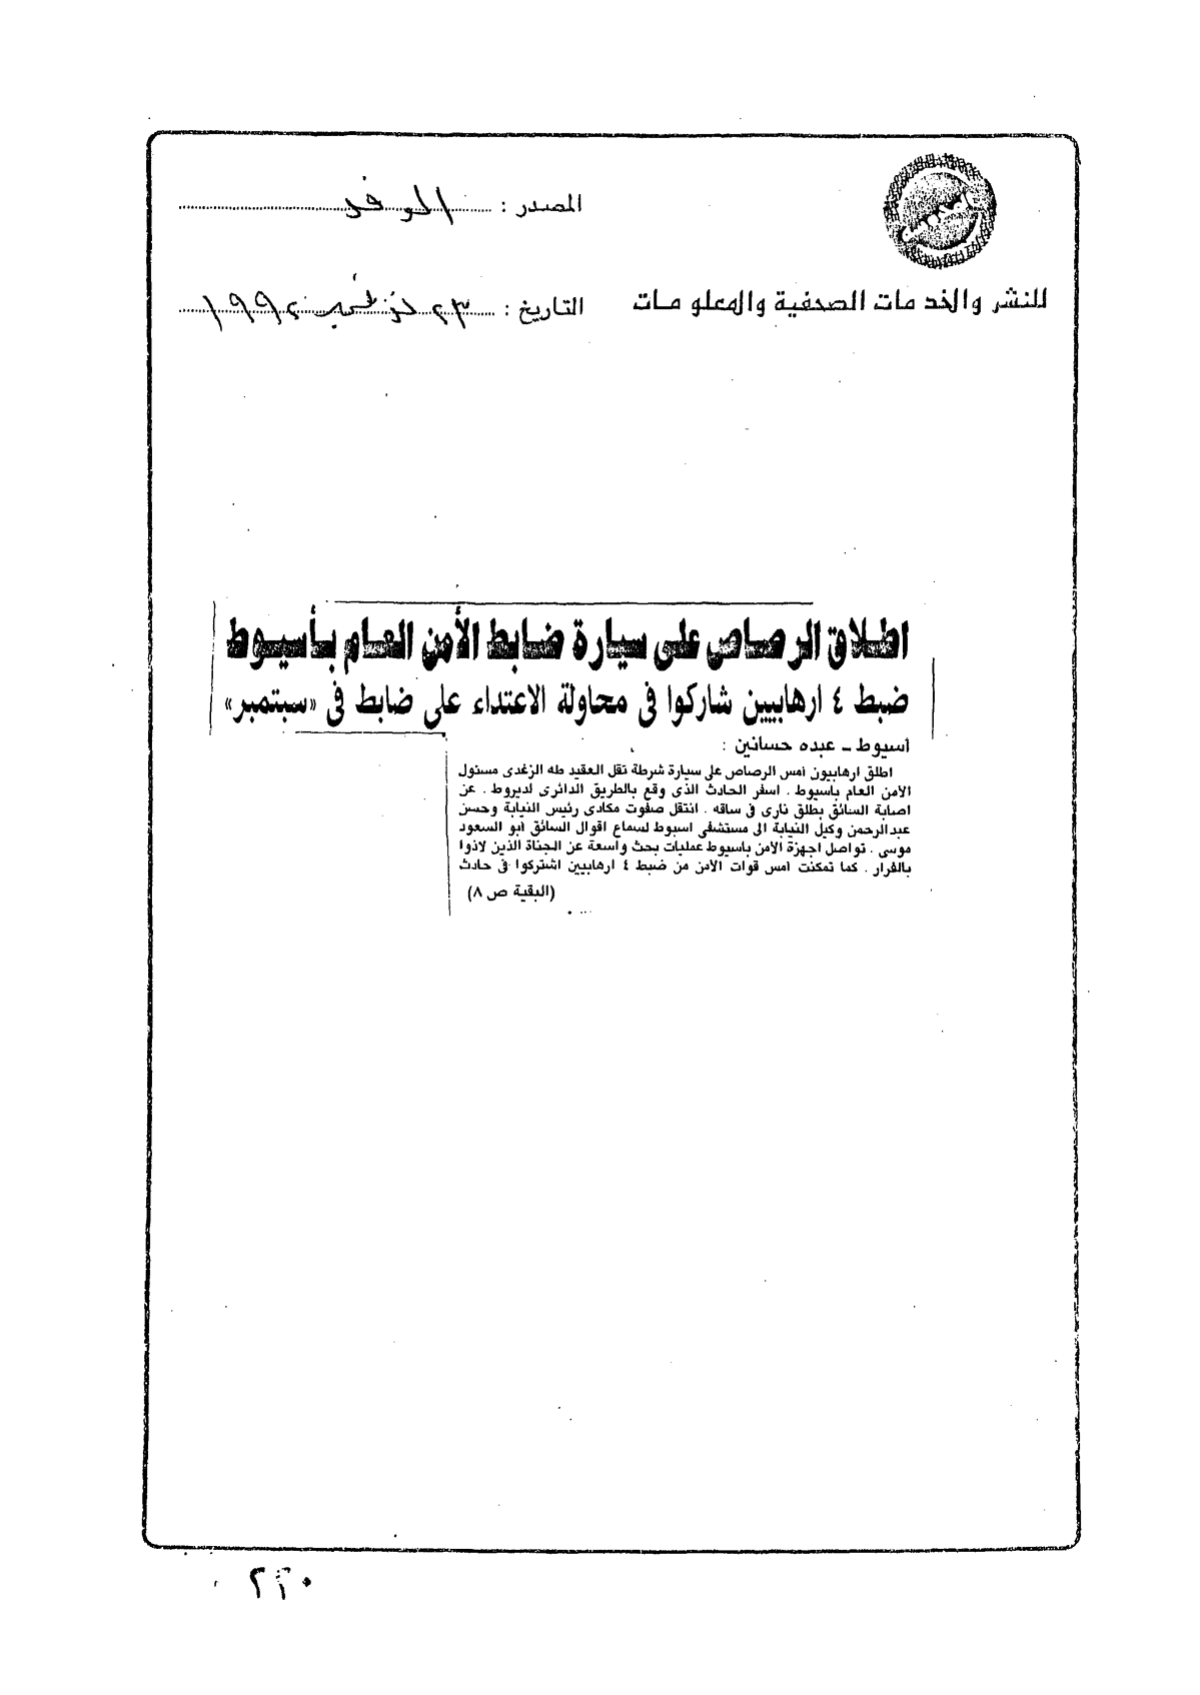 المصدر : الوفد
للنشر والخدمات الصحفية والمعلومات
التاريخ : ٢٣ نوفمبر ١٩٩٢
اطلاق الرصاص على سيارة ضابط الأمن العام بأسيوط
ضبط ٤ ارهابيين شاركوا فى محاولة الاعتداء على ضابط فى «سبتمبر»
أسيوط ــ عبده حسانين :
اطلق ارهابيون أمس الرصاص على سيارة شرطة تقل العقيد طه الزغدى مسئول
الأمن العام باسيوط . اسفر الحادث الذى وقع بالطريق الدائرى لديروط . عن
اصابة السائق بطلق نارى فى ساقه . انتقل صفوت مكادى رئيس النيابة وحسن
عبدالرحمن وكيل النيابة الى مستشفى اسيوط لسماع اقوال السائق أبو السعود
موسى . تواصل اجهزة الأمن باسيوط عمليات بحث واسعة عن الجناة الذين لاذوا
بالفرار . كما تمكنت أمس قوات الأمن من ضبط ٤ ارهابيين اشتركوا فى حادث
(البقية ص ٨)